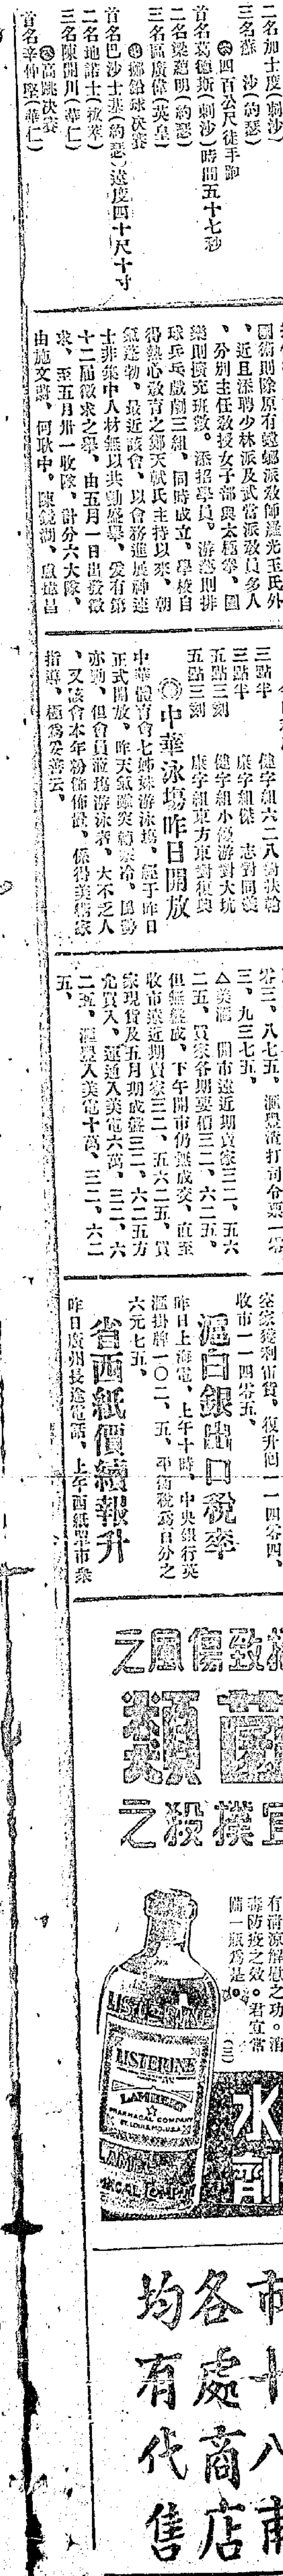 二名加士度(剌沙)
三名蘇　沙(約瑟)
四百公尺徒手跑
首名葛德斯(剌沙)時間五十七秒
二名梁超明(約瑟)
三名區廣偉(英皇)
擲鉛球決賽
首名巴沙士基(約瑟)遠度四十尺十寸
二名地諾士(敎萃)
三名陳開川(華仁)
高跳決賽
首名辛仲堅(華仁)
國術則除原有螳螂派敎師羅光玉氏外
、近且添聘少林派及武當派敎員多人
、分別主任敎授女子部與太極拳、國
樂則擴充班數。添招學員。游藝則排
球乒乓戲劇三組、同時成立、學校自
得熱心敎育之鄭天猷氏主持以來、朝
氣蓬勃、最近該會、以會務進展神速
士非集中人材無以共勷盛舉、爰有第
十二屆徵求之舉、由五月一日出發徵
求、至五月卅一收隊、計分六大隊、
由施文蔚、何耿中、陳鏡湖、盧達昌
三點半　健字組六二八對扶輪
三點半　康字組傑　志對同義
五點三刻　健字組小優游對大坑
五點三刻　康字組東方東對復興
◎中華泳塲昨日開放
中華體育會七姊妹游泳塲、經于昨日
正式開放、昨天氣雖突轉寒冷、風勢
亦勁、但會員蒞塲游泳者、大不乏人
、又該會本年粉飾佈置、係得美術家
指導、極爲妥善云、
零三、八七五、滙豐渣打司令票一零
三、九三七五、
△美滙　開市遠近期賣家三二、五六
二五、買家各期要價三二、六二五、
但無盤成、下午開市仍無成交、直至
收市遠近期賣家三二、五六二五、買
家現貨及五月期成盤三二、六二五方
允買入、運通入美電六萬、三二、六
二五、滙豐入美電十萬、三二、六二
五、
空家獲利留貨、復升回一一四零四、
收市一一四零五、
滬白銀出口稅率
昨日上海電、上午十時、中央銀行英
滙掛牌一〇二、五、平衡稅爲百分之
六元七五、
省西紙價續報升
昨日廣州長途電話、上午西紙單市衆
致傷風之
菌類
宜撲殺之
有淸凉解慰之功。消
毒防疫之效。君宜常
備一瓶爲是。
(三)
水劑
LISTERINE
LAMBERT
PHARMACAL COMPANY
ST. LOUIS, MO. U.S.A.
市十八甫
各處商店
均有代售